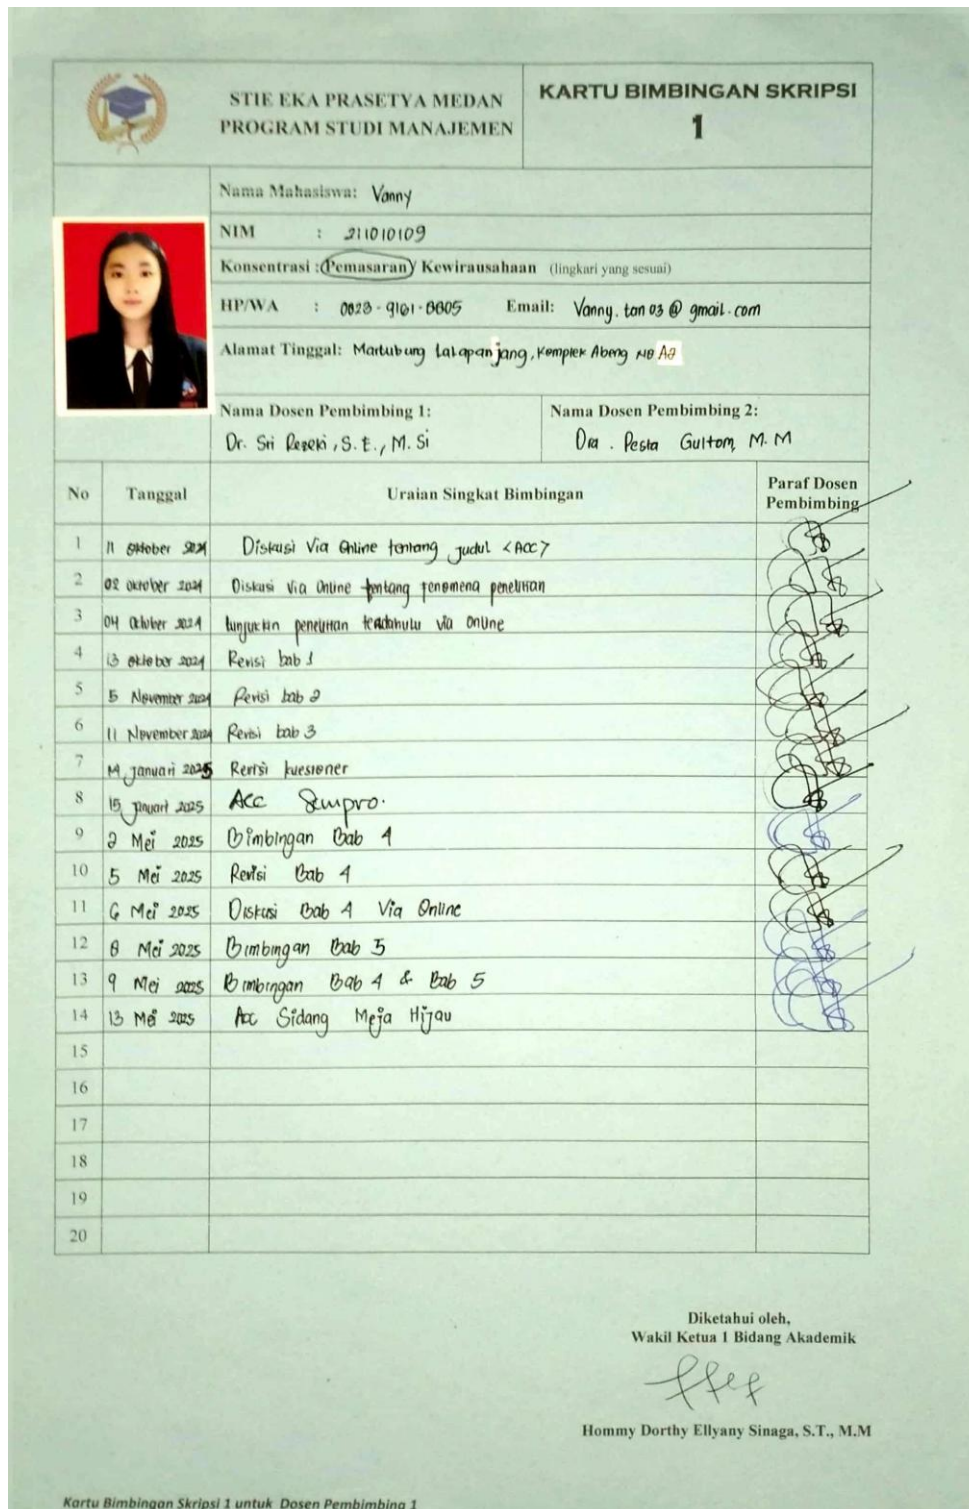 STIE EKA PRASETYA MEDAN
PROGRAM STUDI MANAJEMEN
KARTU BIMBINGAN SKRIPSI
1
Nama Mahasiswa: Vanny
NIM : 211010109
Konsentrasi : Pemasaran / Kewirausahaan (lingkari yang sesuai)
HP/WA : Email: Vanny.tan03@gmail.com
Alamat Tinggal: Martubung Lalapanjang, Komplek Abeng No A2
Nama Dosen Pembimbing 1: Nama Dosen Pembimbing 2:
Dr. Sri Rezeki, S.E., M.Si Dra. Pesta Gultom, M.M
No Tanggal Uraian Singkat Bimbingan Paraf Dosen Pembimbing
1 11 Oktober 2024 Diskusi Via Online tentang judul <ACC>
2 02 Oktober 2024 Diskusi Via Online tentang fenomena penelitian
3 04 Oktober 2024 tunjukkin penelitian terdahulu via Online
4 13 Oktober 2024 Revisi bab 1
5 5 November 2024 Revisi bab 2
6 11 November 2024 Revisi bab 3
7 14 Januari 2025 Revisi kuesioner
8 15 Januari 2025 ACC Sempro.
9 2 Mei 2025 Bimbingan Bab 4
10 5 Mei 2025 Revisi Bab 4
11 6 Mei 2025 Diskusi Bab 4 Via Online
12 8 Mei 2025 Bimbingan Bab 5
13 9 Mei 2025 Bimbingan Bab 4 & Bab 5
14 13 Mei 2025 Acc Sidang Meja Hijau
15
16
17
18
19
20
Diketahui oleh,
Wakil Ketua 1 Bidang Akademik
Hommy Dorthy Ellyany Sinaga, S.T., M.M
Kartu Bimbingan Skripsi 1 untuk Dosen Pembimbing 1